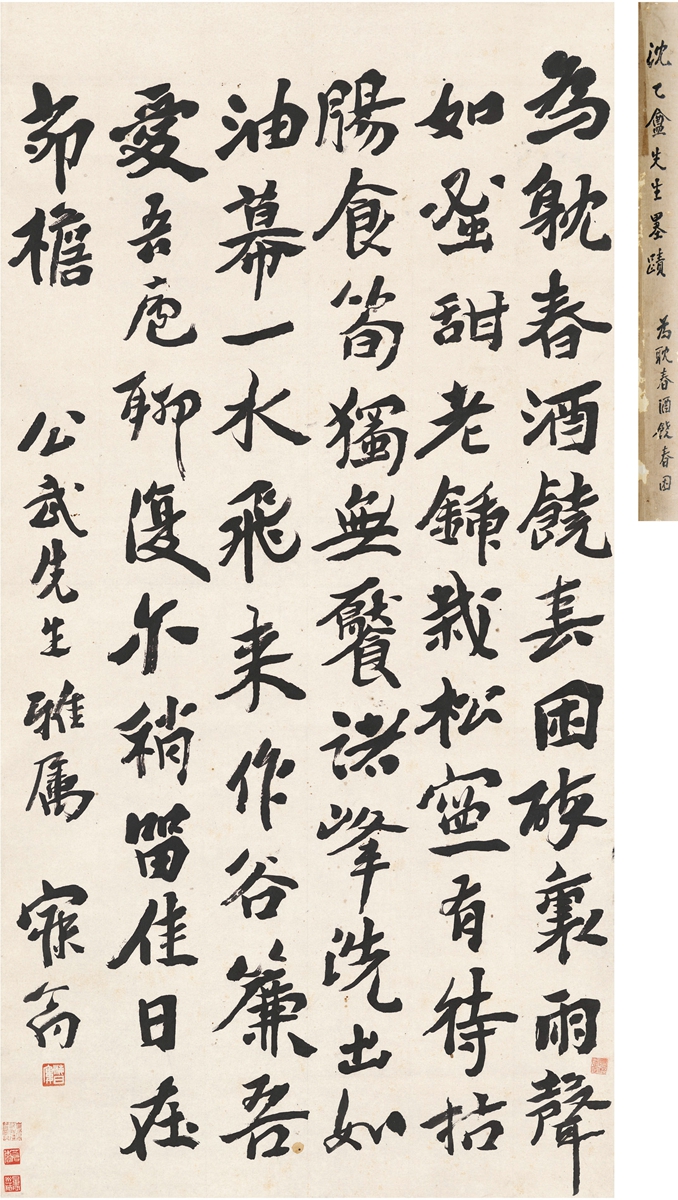 為躭春酒饒春困酔裏雨聲
如蜜甜老鍤栽松寧有待枯
腸食筍獨無饜諸峰洗出如
油幕一水飛来作谷簾吾
愛吾廬聊復尔稍留佳日在
茆檐 公武先生雅属 寐翁
沈乙盦先生墨蹟 為耽春酒饒春困